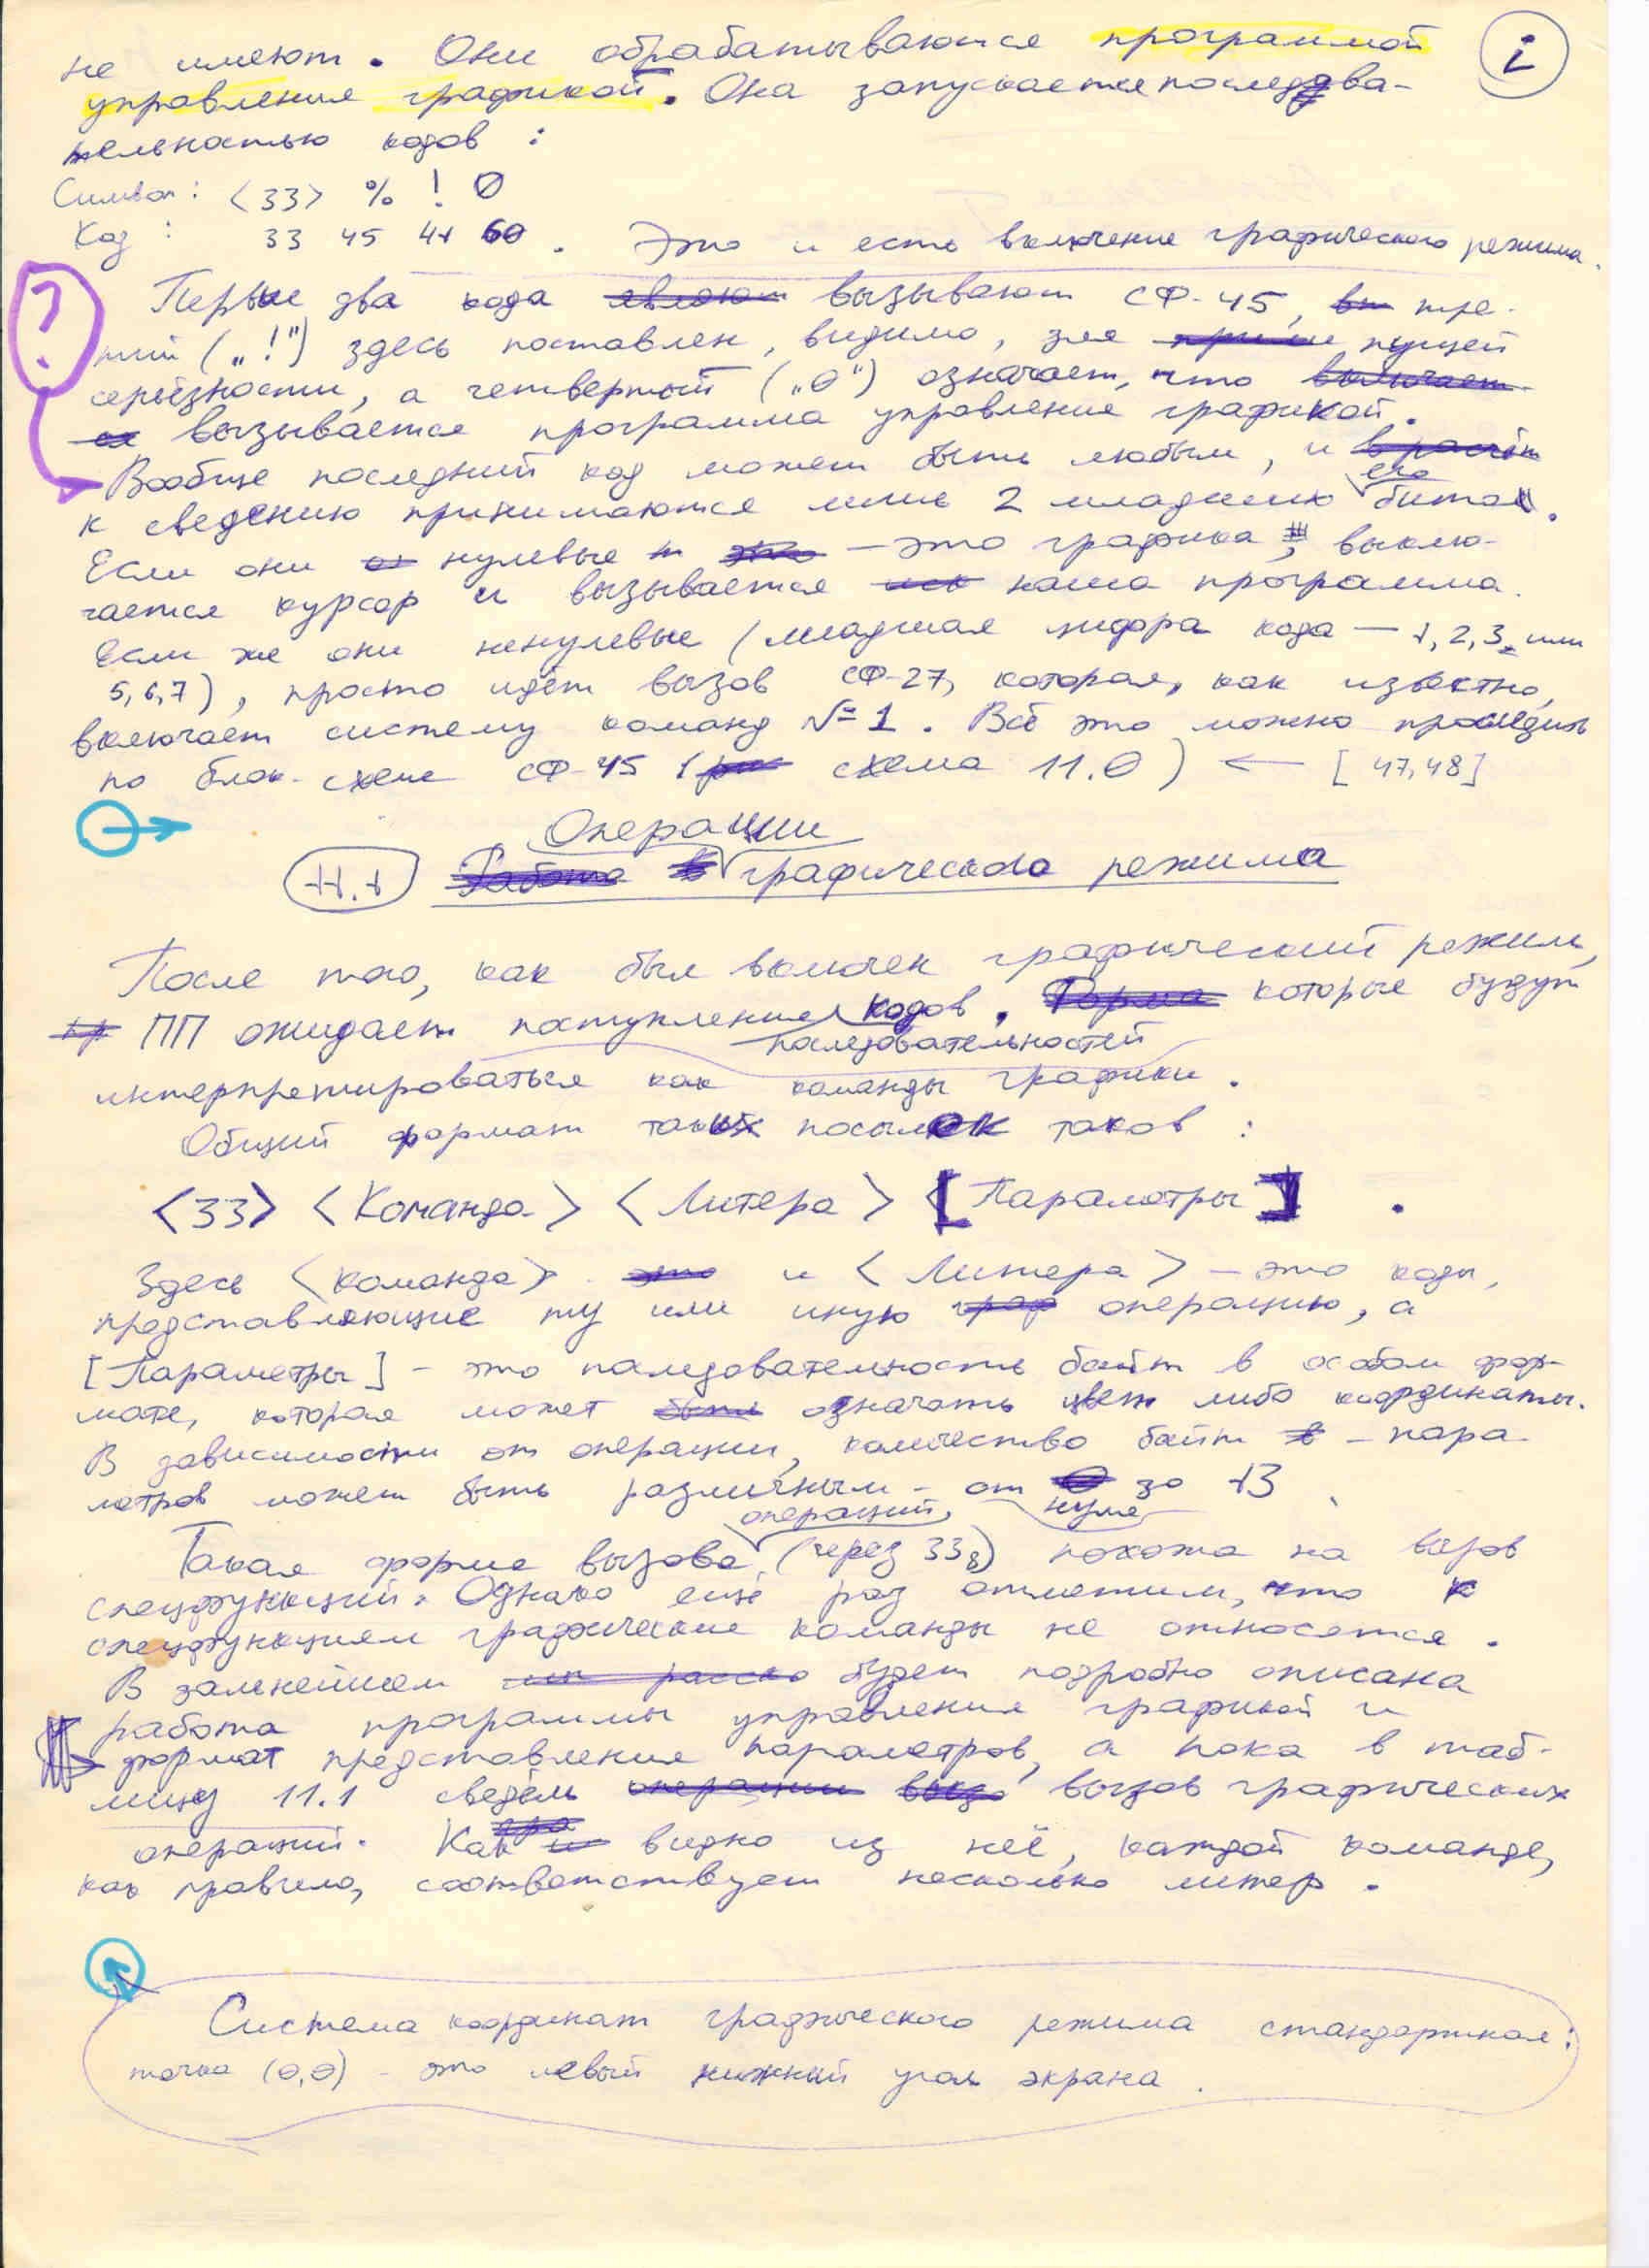 не имеют. Они обрабатываются программой
2
управления графикой. Она запускается последова-
тельностью кодов :
Символ : <33> % ! 0
Код : 33 45 41 60 . Это и есть включение графического режима.
?
Первые два кода вызывают СФ-45, тре-
тий („!") здесь поставлен, видимо, для пущей
серьёзности, а четвертый („0") означает, что
вызывается программа управления графикой.
Вообще последний код может быть любым, и
к сведению принимаются лишь 2 младших его бита.
Если они нулевые — это графика, выклю-
чается курсор и вызывается наша программа.
Если же они ненулевые (младшая цифра кода — 1, 2, 3, или
5, 6, 7), просто идёт вызов СФ-27, которая, как известно,
включает систему команд №1. Всё это можно проследить
по блок-схеме СФ-45 (схема 11.0) ← [47,48]
Операции
11.1 графического режима
После того, как был включен графический режим,
ПП ожидает поступления кодов, которые будут
последовательностей
интерпретироваться как команды графики.
Общий формат таких посылок таков :
<33> <Команда> <Литера> [Параметры] .
Здесь <команда> и <Литера> - это коды,
представляющие ту или иную операцию, а
[Параметры] - это последовательность байт в особом фор-
мате, которая может означать цвет либо координаты.
В зависимости от операции, количество байт - пара-
метров может быть различным - от нуля до 13.
Такая форма вызова операций, (через 33₈) похожа на вызов
спецфункций. Однако ещё раз отметим, что к
спецфункциям графические команды не относятся.
В дальнейшем будет подробно описана
работа программы управления графикой и
формат представления параметров, а пока в таб-
лицу 11.1 сведём вызов графических
операций. Как видно из неё, каждой команде,
как правило, соответствует несколько литер.
Система координат графического режима стандартная:
точка (0,0) - это левый нижний угол экрана.